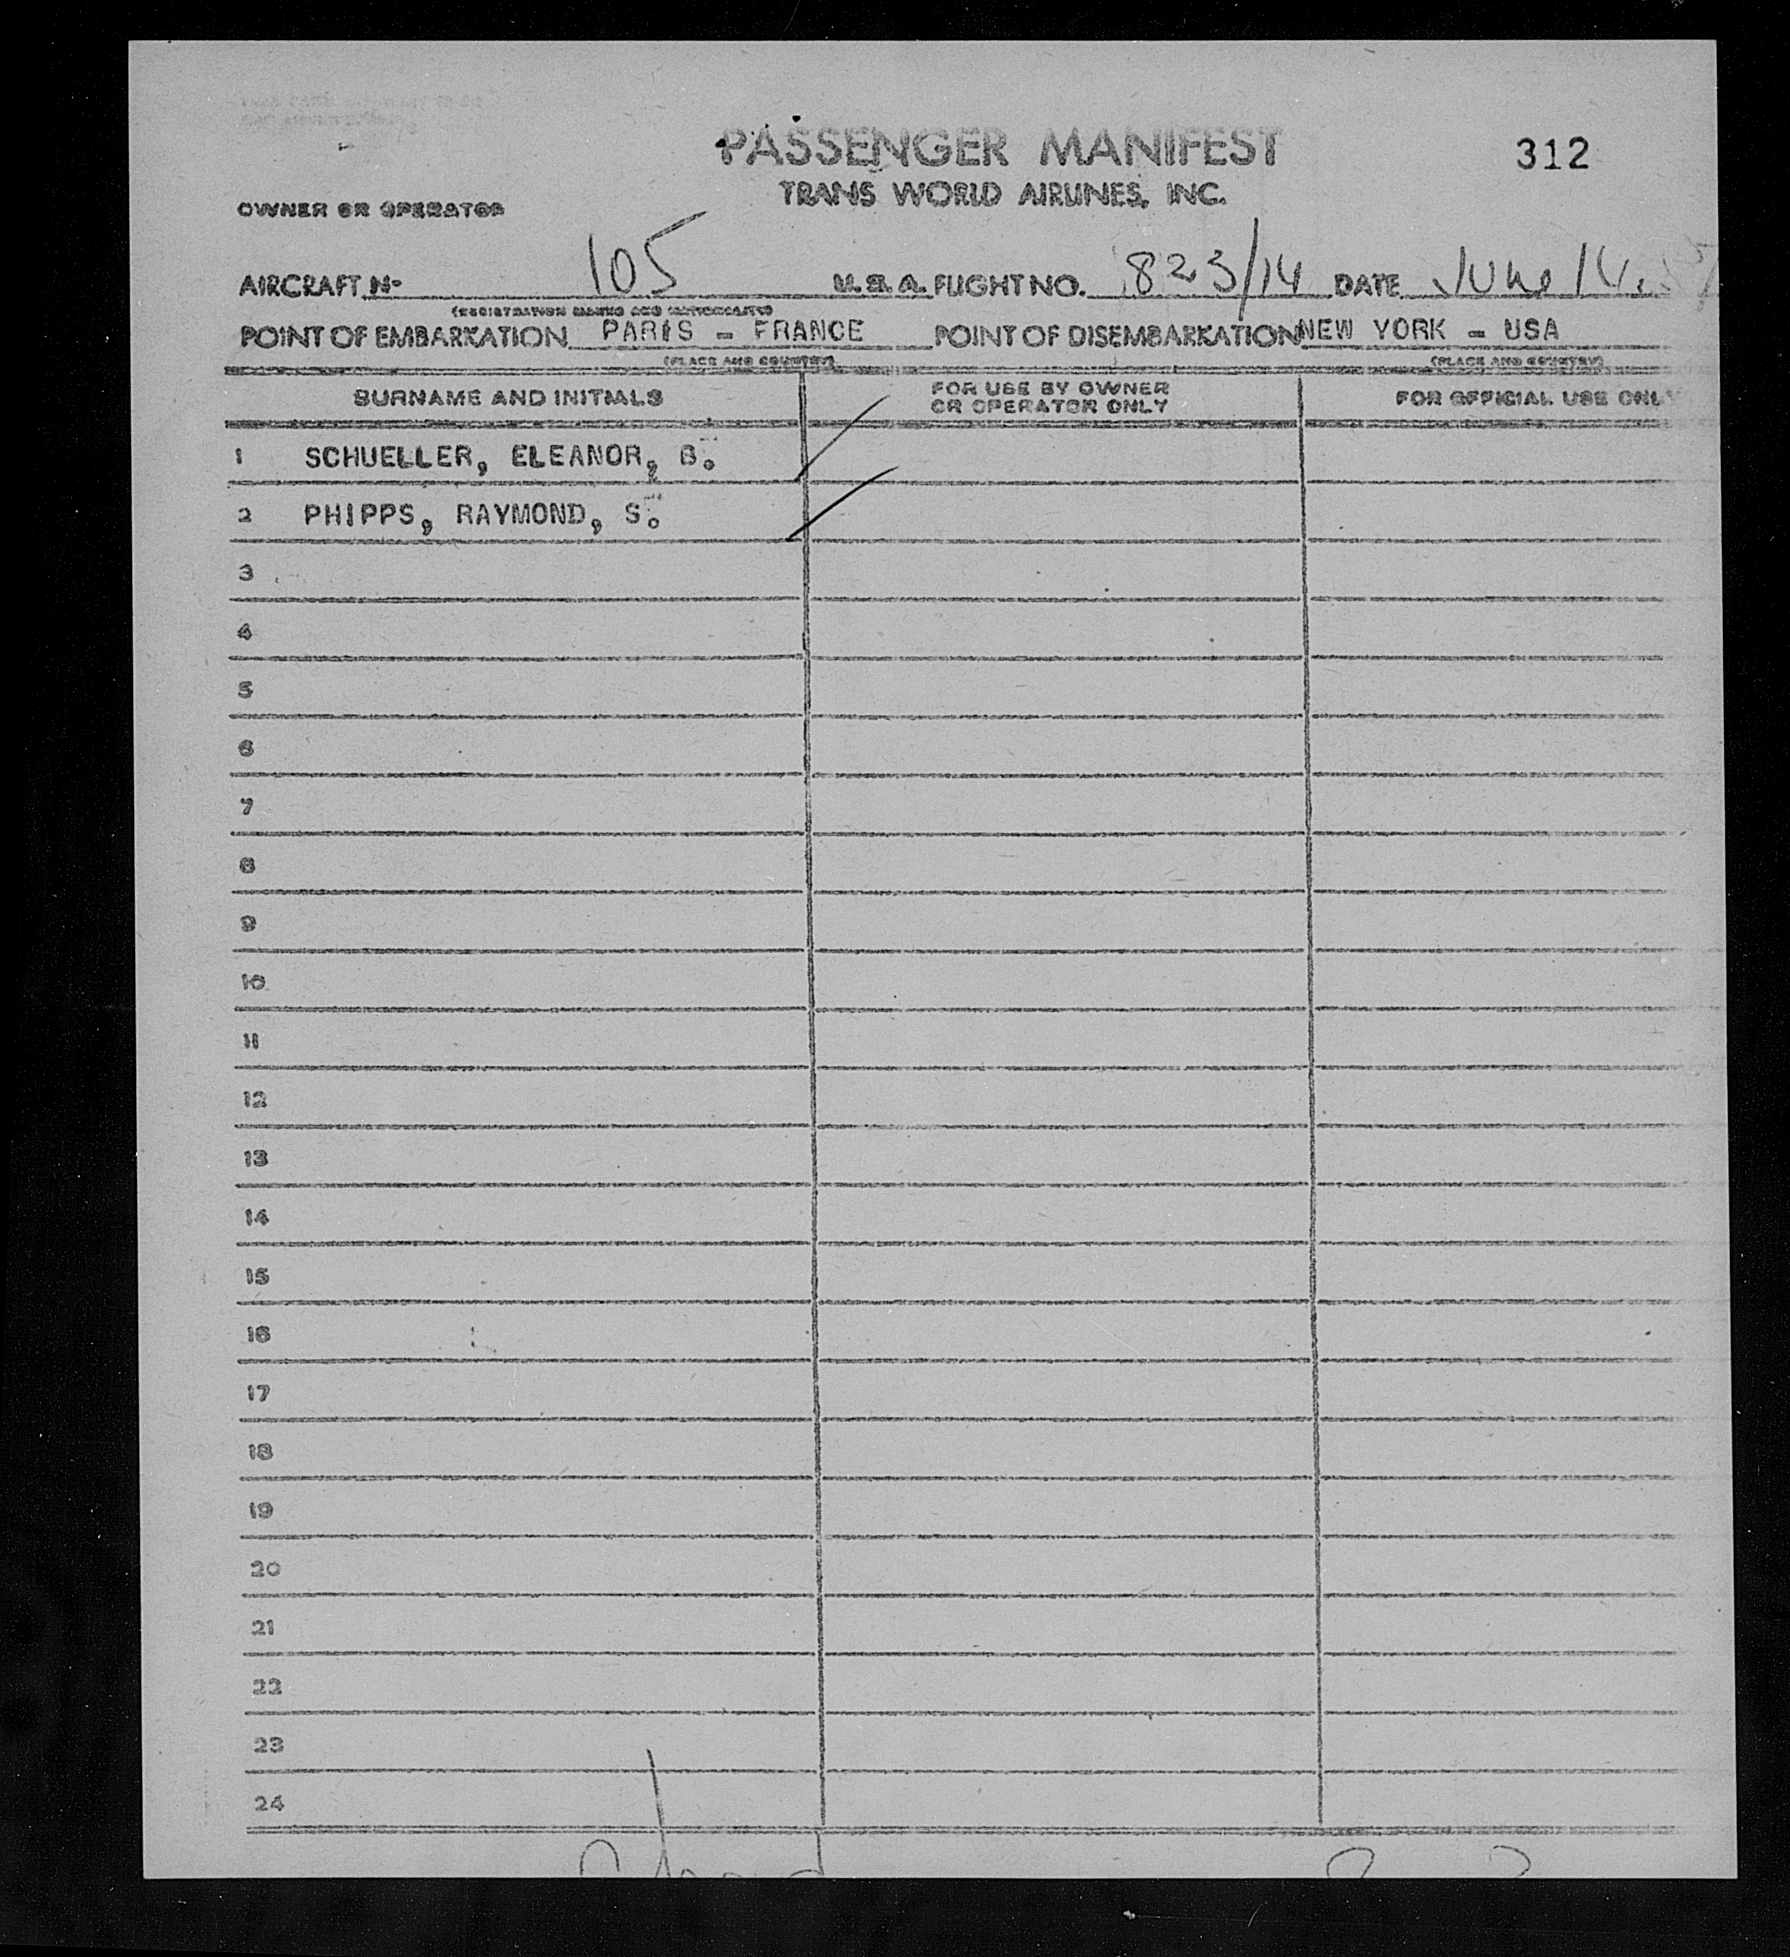 PASSENGER MANIFEST
312
TRANS WORLD AIRLINES, INC.
OWNER OR OPERATOR
AIRCRAFT Nº 105 U.S.A. FLIGHT NO. 823/14 DATE June 14.
(REGISTRATION MARKS AND NATIONALITY)
POINT OF EMBARKATION PARIS - FRANCE POINT OF DISEMBARKATION NEW YORK - USA
(PLACE AND COUNTRY) (PLACE AND COUNTRY)
SURNAME AND INITIALS FOR USE BY OWNER OR OPERATOR ONLY FOR OFFICIAL USE ONLY
1 SCHUELLER, ELEANOR, B.
2 PHIPPS, RAYMOND, S.
3
4
5
6
7
8
9
10
11
12
13
14
15
16
17
18
19
20
21
22
23
24